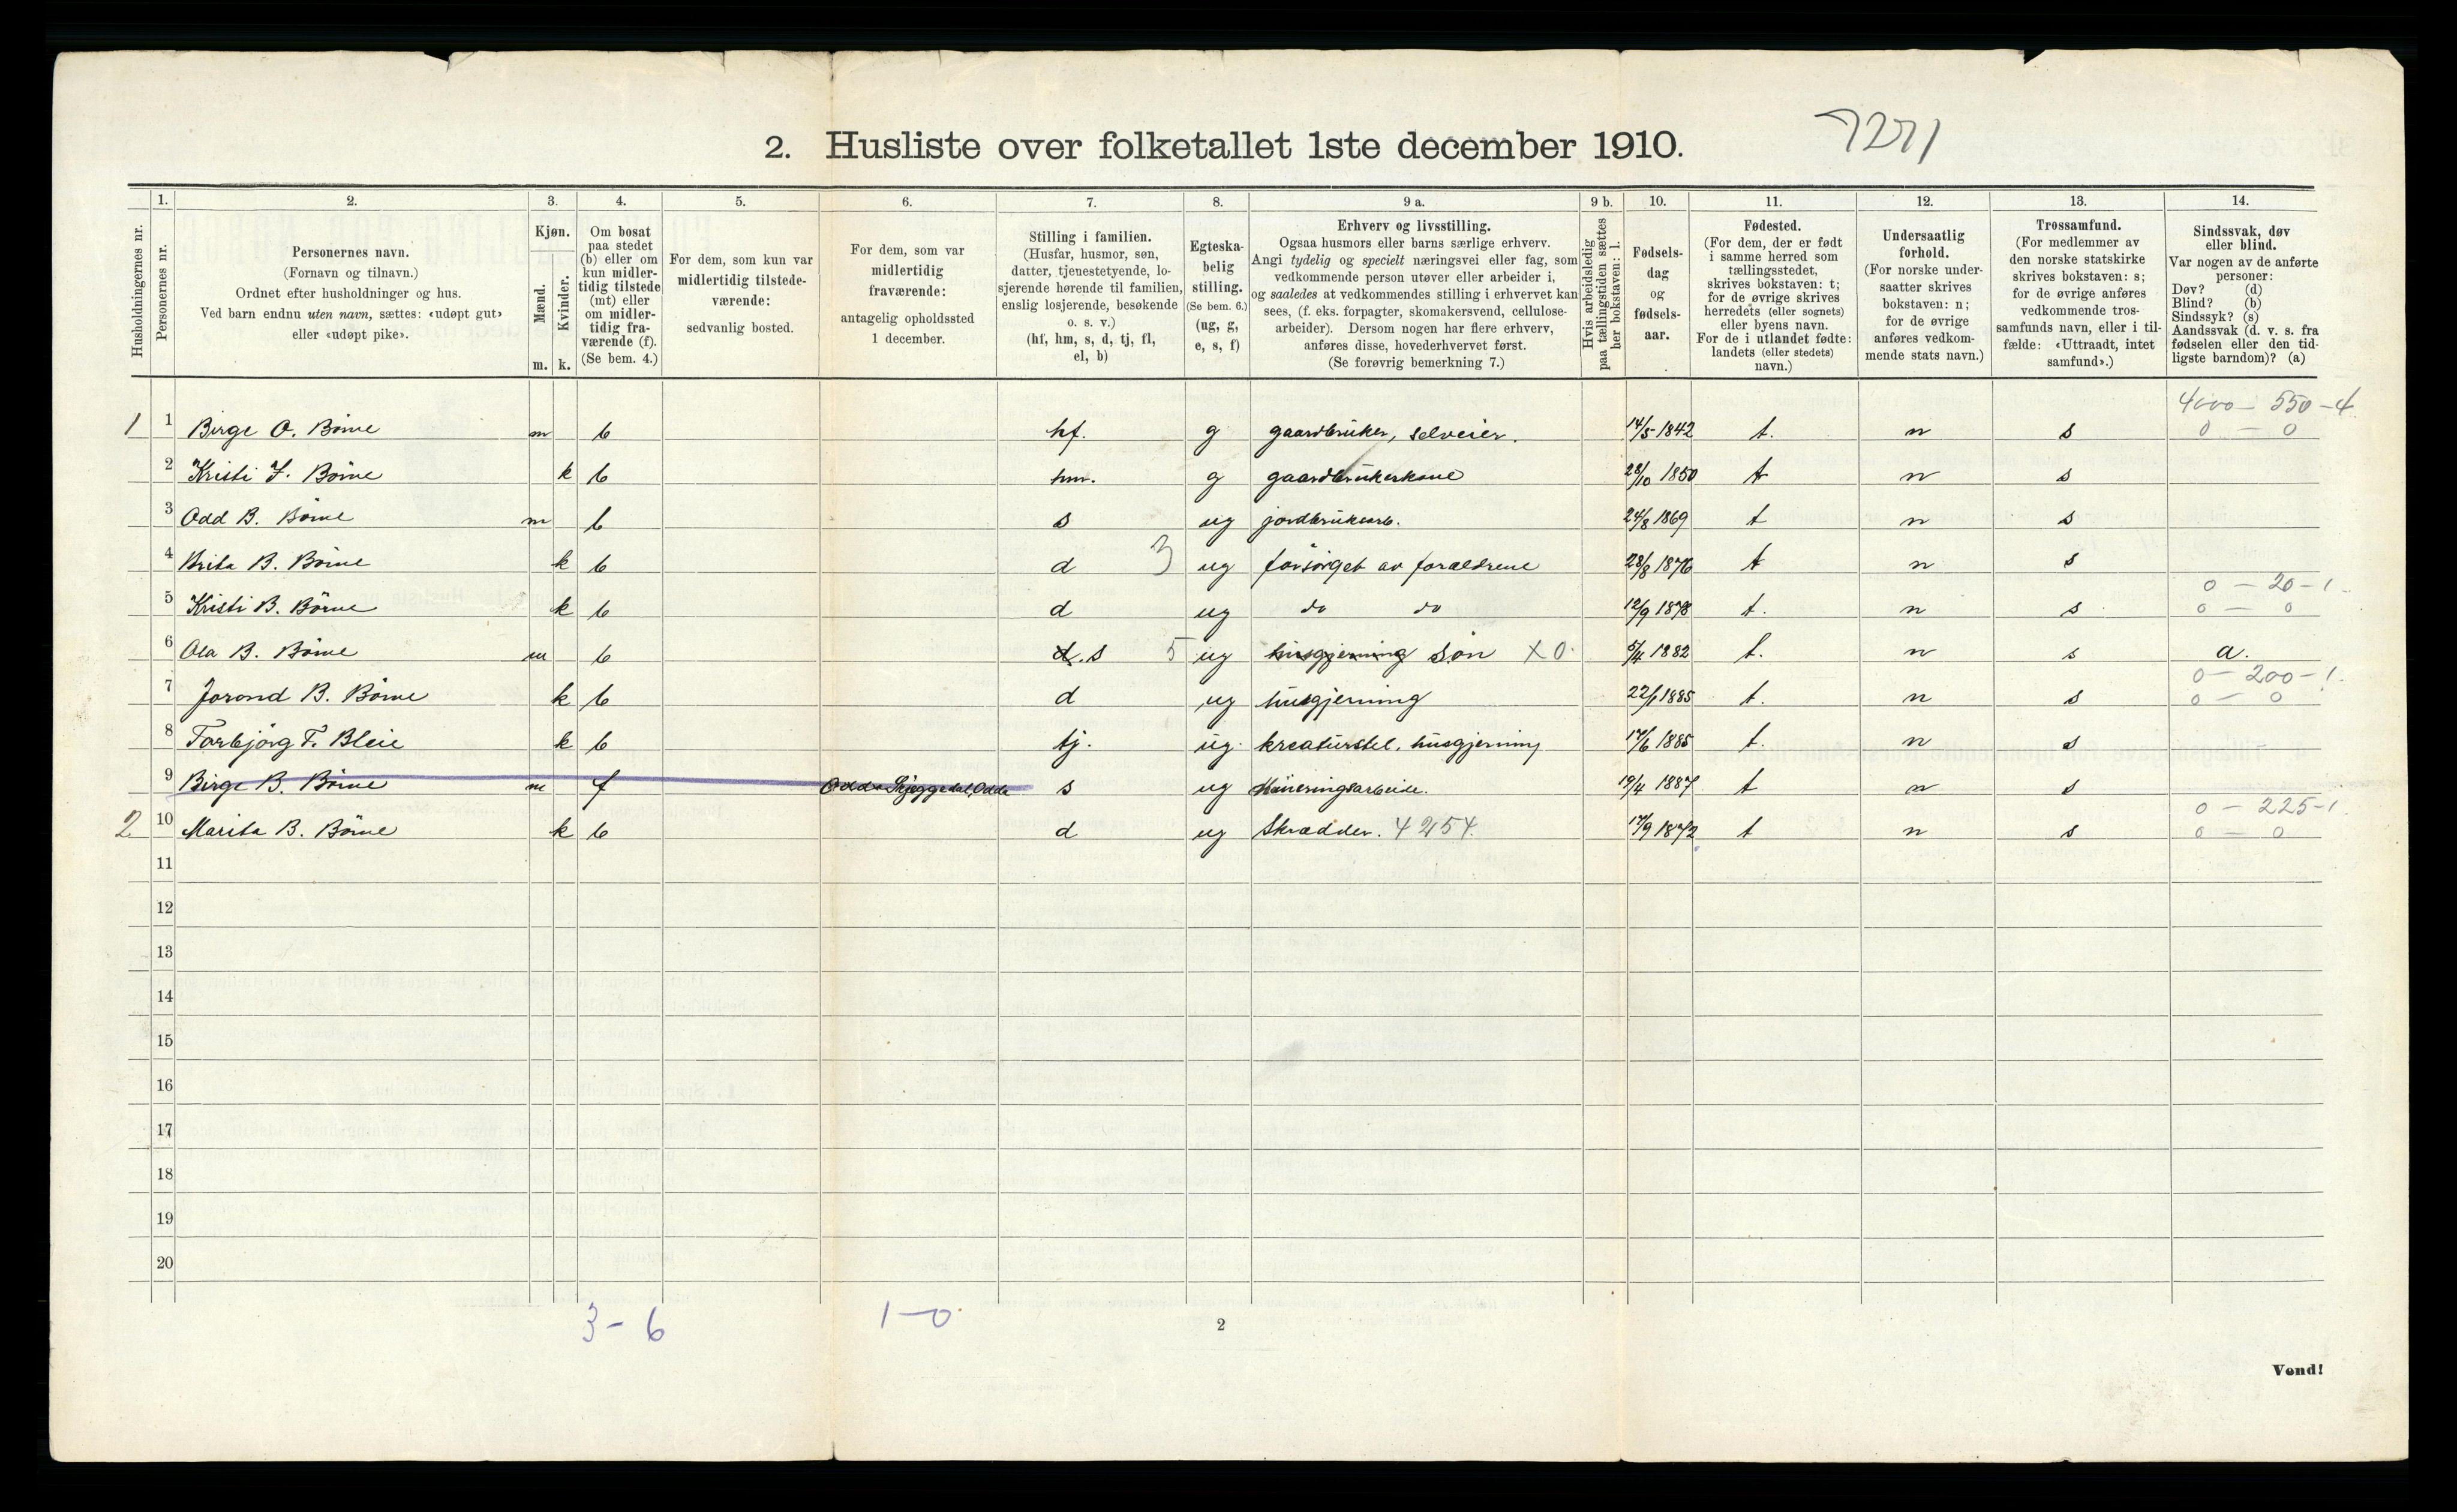 2. Husliste over folketallet 1ste december 1910.
7271
Husholdningernes nr.
1.
Personernes nr.
2.
Personernes navn.
(Fornavn og tilnavn.)
Ordnet efter husholdninger og hus.
Ved barn endnu uten navn, sættes: «udøpt gut»
eller «udøpt pike».
3.
Kjøn.
Mænd.
Kvinder.
m. k.
4.
Om bosat
paa stedet
(b) eller om
kun midler-
tidig tilstede
(mt) eller
om midler-
tidig fra-
værende (f).
(Se bem. 4.)
5.
For dem, som kun var
midlertidig tilstede-
værende:
sedvanlig bosted.
6.
For dem, som var
midlertidig
fraværende:
antagelig opholdssted
1 december.
7.
Stilling i familien.
(Husfar, husmor, søn,
datter, tjenestetyende, lo-
sjerende hørende til familien,
enslig losjerende, besøkende
o. s. v.)
(hf, hm, s, d, tj, fl,
el, b)
8.
Egteska-
belig
stilling.
(Se bem. 6.)
(ug, g,
e, s, f)
9 a.
Erhverv og livsstilling.
Ogsaa husmors eller barns særlige erhverv.
Angi tydelig og specielt næringsvei eller fag, som
vedkommende person utøver eller arbeider i,
og saaledes at vedkommendes stilling i erhvervet kan
sees, (f. eks. forpagter, skomakersvend, cellulose-
arbeider). Dersom nogen har flere erhverv,
anføres disse, hovederhvervet først.
(Se forøvrig bemerkning 7.)
9 b.
Hvis arbeidsledig
paa tællingstiden sættes
her bokstaven: l.
10.
Fødsels-
dag
og
fødsels-
aar.
11.
Fødested.
(For dem, der er født
i samme herred som
tællingsstedet,
skrives bokstaven: t;
for de øvrige skrives
herredets (eller sognets)
eller byens navn.
For de i utlandet fødte:
landets (eller stedets)
navn.)
12.
Undersaatlig
forhold.
(For norske under-
saatter skrives
bokstaven: n;
for de øvrige
anføres vedkom-
mende stats navn.)
13.
Trossamfund.
(For medlemmer av
den norske statskirke
skrives bokstaven: s;
for de øvrige anføres
vedkommende tros-
samfunds navn, eller i til-
fælde: «Uttraadt, intet
samfund».)
14.
Sindssvak, døv
eller blind.
Var nogen av de anførte
personer:
Døv? (d)
Blind? (b)
Sindssyk? (s)
Aandssvak (d. v. s. fra
fødselen eller den tid-
ligste barndom)? (a)
4000 - 550 - 4
1 1 Birge O. Börve m b hf. g gaardbruker, selveier. 14/5 1842 t. n s 0 - 0
2 Kristi J. Börve k b hm. g gaardbrukerkone 28/10 1850 t n s
3 Odd B. Börve m b s ug jordbruksarb. 24/8 1869 t n s
4 Brita B. Börve k b d 3 ug forsörget av forældrene 28/8 1876 t n s
0 - 20 - 1
5 Kristi B. Börve k b d ug do do 12/9 1878 t. n s 0 - 0
6 Ola B. Börve m b d. s 5 ug husgjerning sön X0. 5/4 1882 t. n s a.
0 - 200 - 1.
7 Jorond B. Börve k b d ug husgjerning 22/1 1885 t. n s 0 - 0
8 Torbjörg T. Bleie k b tj. ug. kreaturstel, husgjerning 17/6 1885 t. n s
9 Birge B. Börve m f Odda Skjeggedal, Odda s ug Mineringsarbeide. 19/4 1887 t n s
0 - 225 - 1
2 10 Marita B. Börve k b d ug Skrædder. 4254. 17/9 1872 t n s 0 - 0
11
12
13
14
15
16
17
18
19
20
3 - 6 1 - 0
2
Vend!